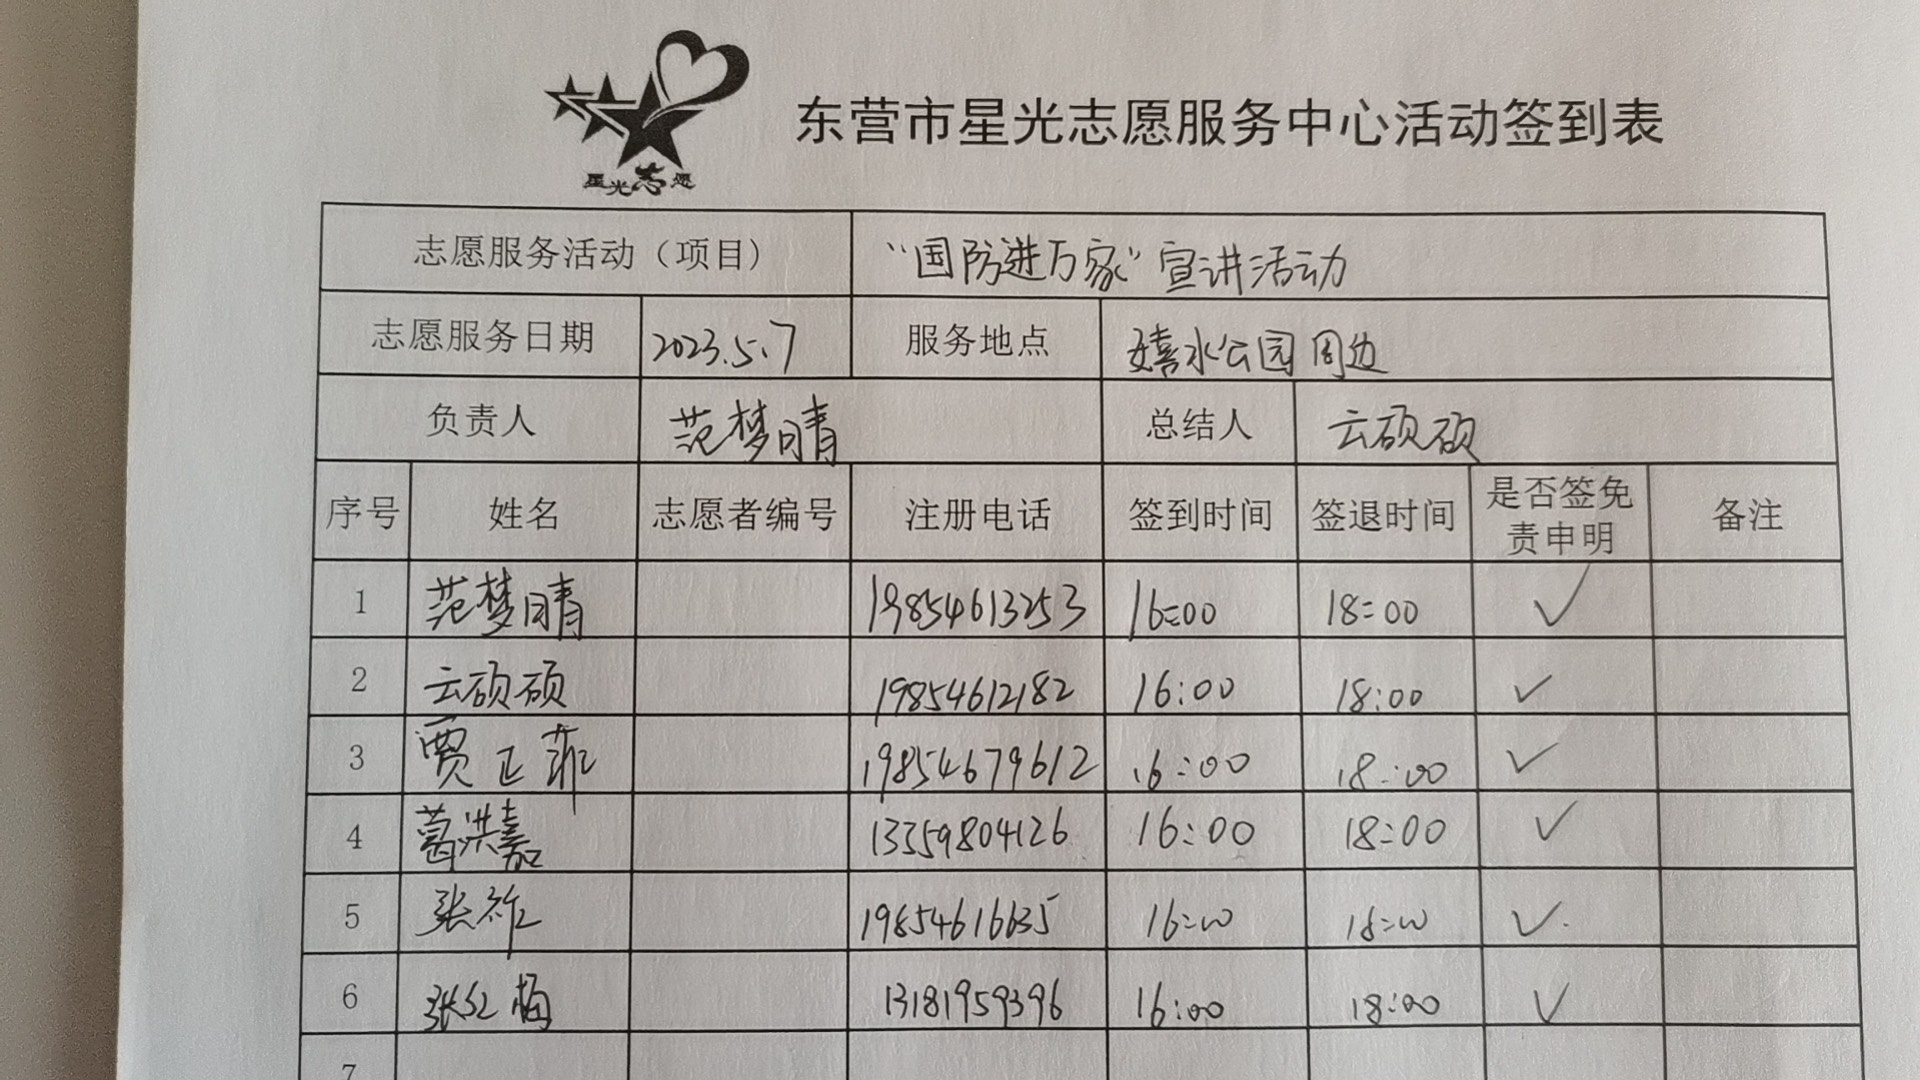 东营市星光志愿服务中心活动签到表
星光志愿
志愿服务活动（项目） “国防进万家”宣讲活动
志愿服务日期 2023.5.7 服务地点 嬉水公园周边
负责人 范梦晴 总结人 云硕硕
序号 姓名 志愿者编号 注册电话 签到时间 签退时间 是否签免责申明 备注
1 范梦晴 19854613253 16:00 18:00 ✓
2 云硕硕 19854612182 16:00 18:00 ✓
3 贾正菲 19854679612 16:00 18:00 ✓
4 葛洪嘉 13359804126 16:00 18:00 ✓
5 张 19854616635 16:00 18:00 ✓
6 张红梅 13181959396 16:00 18:00 ✓
7